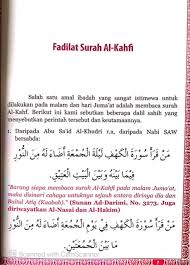 Fadilat Surah Al-Kahfi
Salah satu amal ibadah yang sangat istimewa untuk
dilakukan pada malam dan hari Juma'at adalah membaca surah
Al-Kahf. Berikut ini kami sebutkan beberapa dalil sahih yang
menyebutkan perintah tersebut dan keutamaannya.
1. Daripada Abu Sa'id Al-Khudri r.a, daripada Nabi SAW
bersabda:
مَنْ قَرَأَ سُورَةَ الْكَهْفِ لَيْلَةَ الْجُمُعَةِ أَضَاءَ لَهُ مِنَ النُّورِ
فِيمَا بَيْنَهُ وَبَيْنَ الْبَيْتِ الْعَتِيقِ
"Barang siapa membaca surah Al-Kahfi pada malam Juma'at,
maka disinari cahaya untuknya antara dirinya dia dan
Baitul Atiq (Kaabah)." (Sunan Ad-Darimi, No. 3273. Juga
diriwayatkan Al-Nasai dan Al-Hakim)
مَنْ قَرَأَ سُورَةَ الْكَهْفِ فِي يَوْمِ الْجُمُعَةِ أَضَاءَ لَهُ مِنَ النُّورِ
مَا بَيْنَ الْجُمُعَتَيْنِ
Scanned with CamScanner